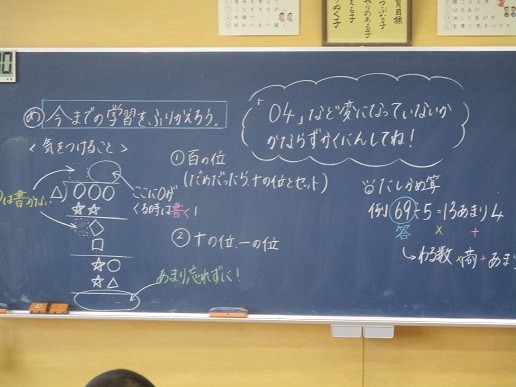 め 今までの学習を、ふりかえろう。
「04」など変になっていないか
かならずかくにんしてね!
<気をつけること>
①百の位
(だめだったら、十の位とセット)
は書かない
ここに0が
くる時は書く!
②十の位、一の位
あまり忘れずに!
たしかめ算
例 69÷5=13あまり4
答 × +
わる数×商+あまり